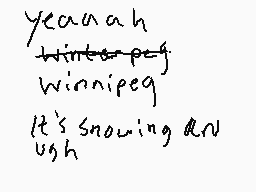 yeaaah
winterpeg
winnipeg
It's snowing an
ugh